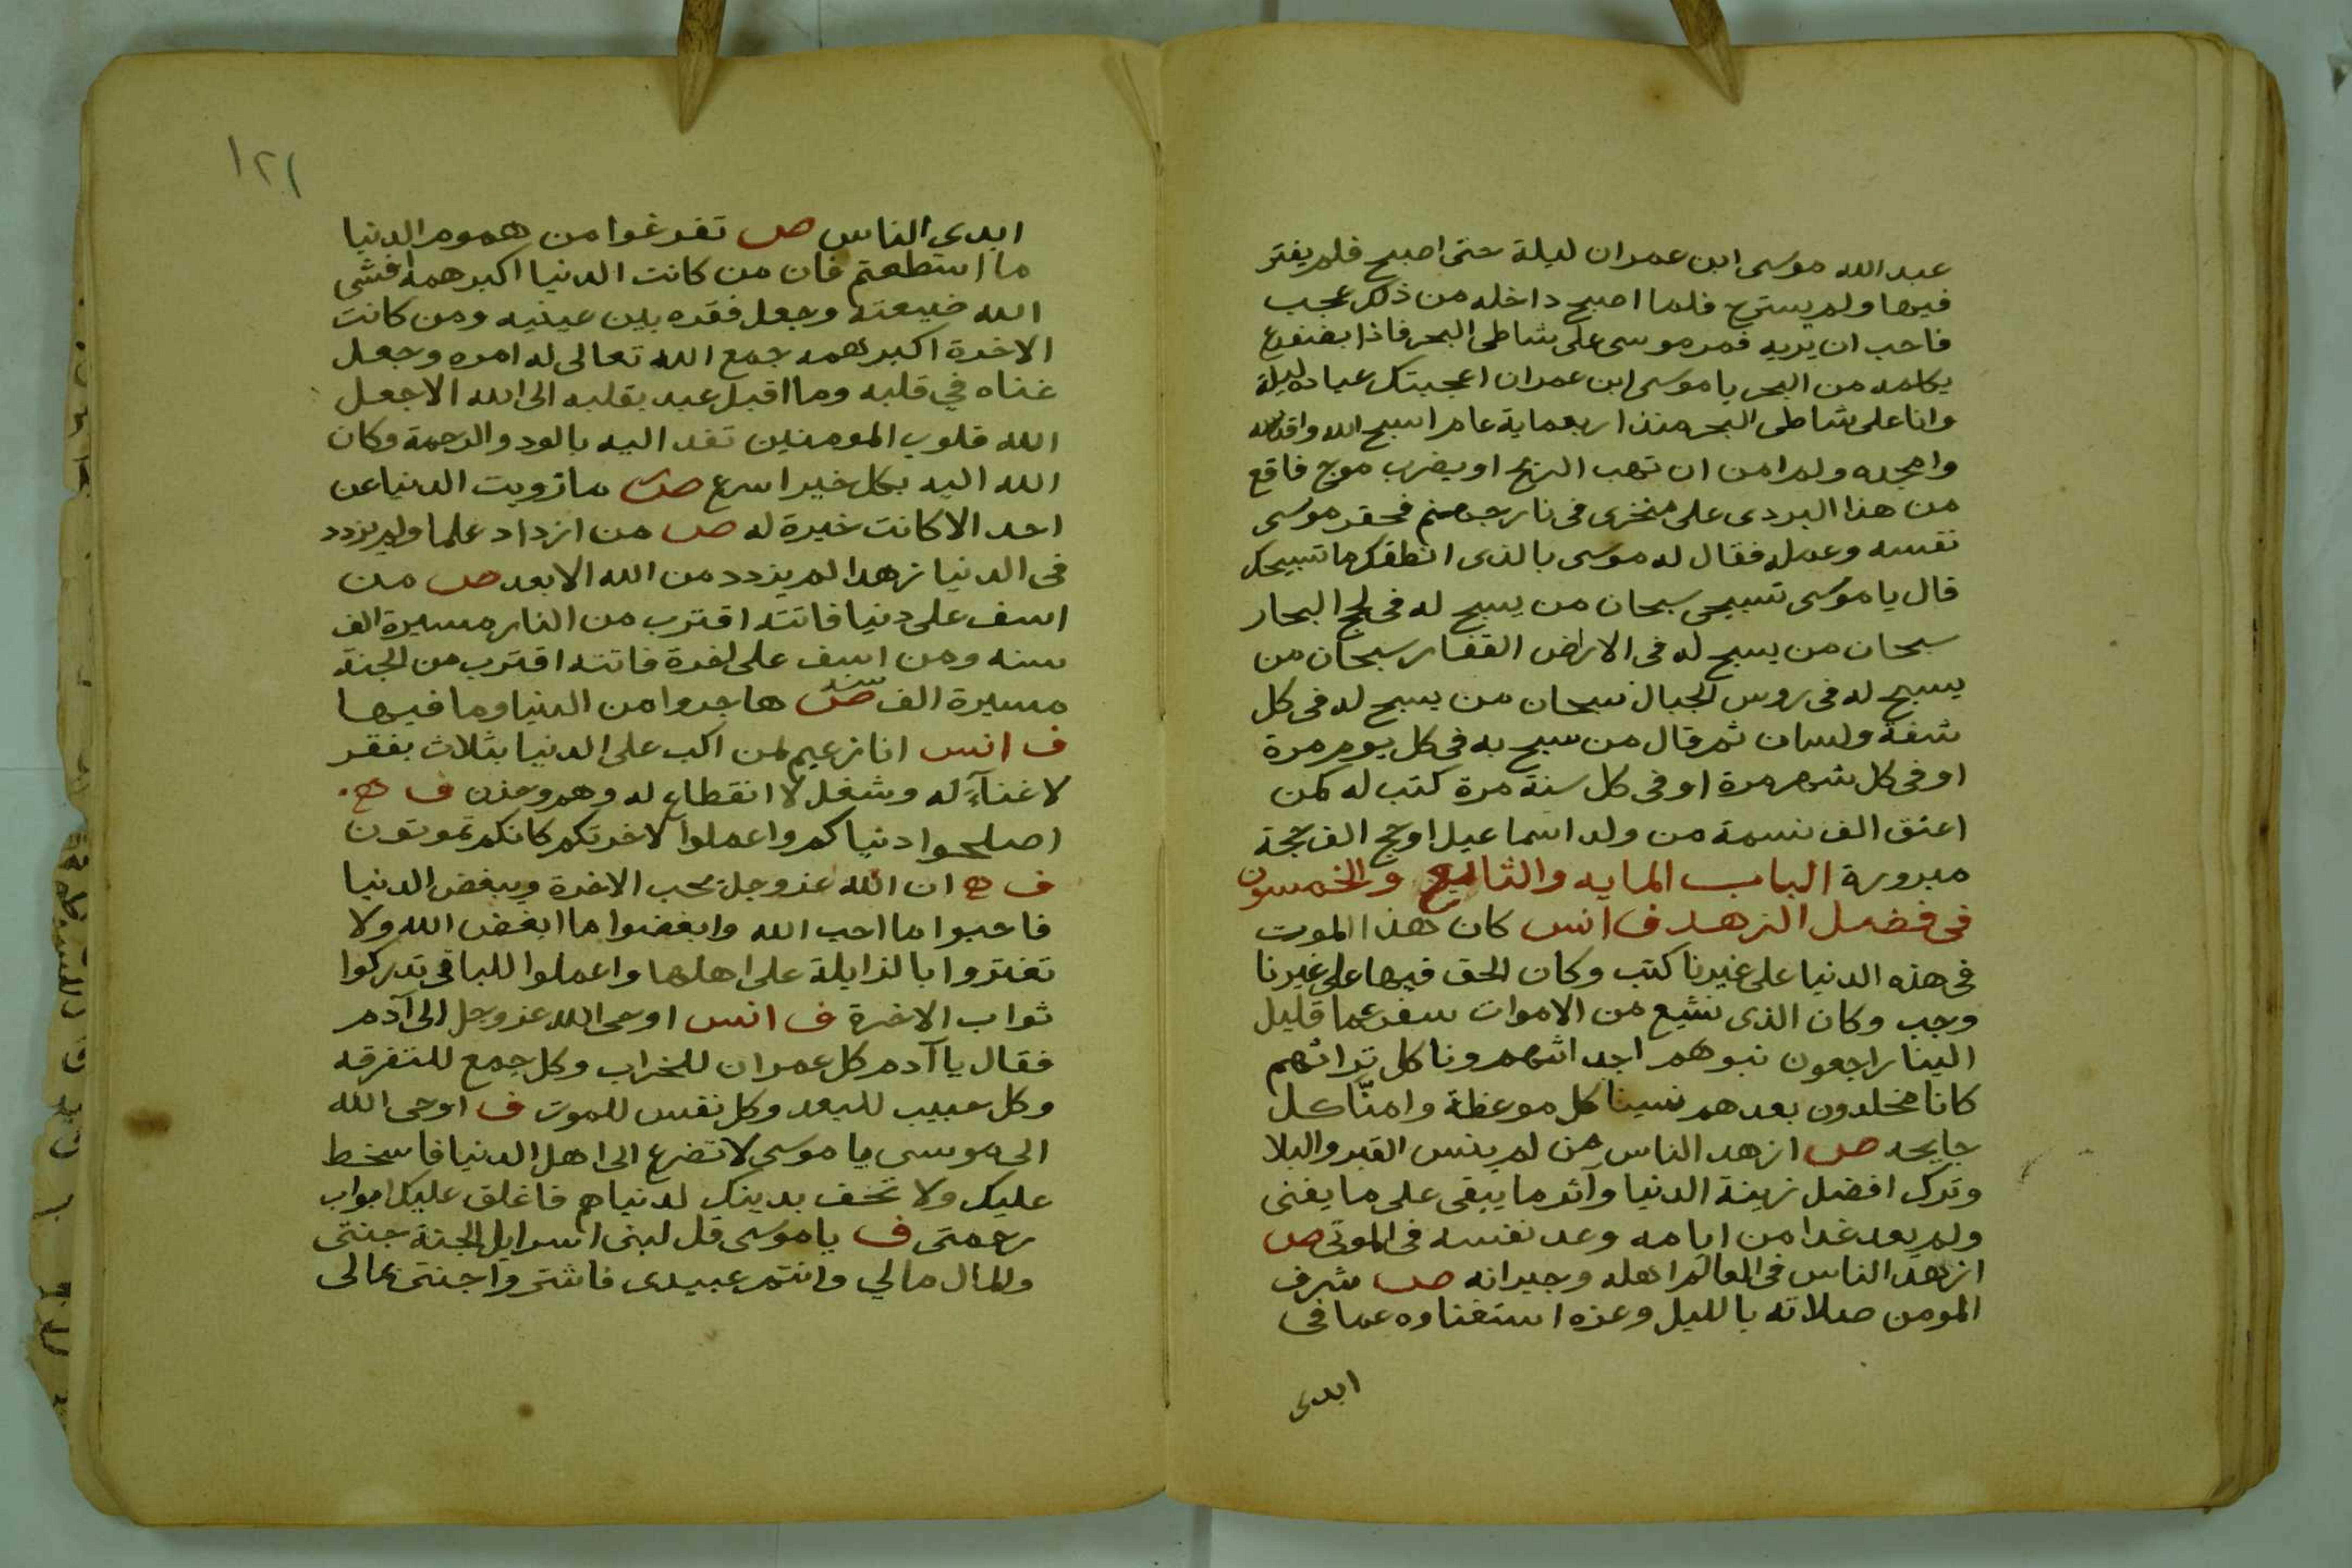 عبد الله موسى ابن عمران ليلة حتى اصبح فلم يفتر
فيها ولم يسترح فلما اصبح داخله من ذلك عجب
فاحب ان يريه فمر موسى على شاطى البحر فاذا بضفدع
يكلمه من البحر يا موسى ابن عمران اعجبتك عبادة ليلة
وانا على شاطى البحر منذ اربعماية عام اسبح الله واقدسه
وامجده ولم امن ان تهب الريح او يضرب موج فاقع
من هذا البردى على منخرى فى نار جهنم فحقر موسى
نفسه وعمله فقال له موسى بالذى انطقك ما تسبيحك
قال يا موسى تسبيحى سبحان من يسبح له فى لجج البحار
سبحان من يسبح له فى الارض القفار سبحان من
يسبح له فى روس الجبال سبحان من يسبح له فى كل
شفة ولسان ثم قال من سبح به فى كل يوم مرة
او فى كل شهر مرة او فى كل سنة مرة كتب له كمن
اعتق الف نسمة من ولد اسماعيل او حج الف حجة
مبرورة الباب المايه والتاسع والخمسون
فى فضل الزهد ف انس كان هذا الموت
فى هذه الدنيا على غيرنا كتب وكان الحق فيها على غيرنا
وجب وكان الذى نشيع من الاموات سفر عما قليل
الينا راجعون نبوهم اجداثهم وناكل تراثهم
كانا مخلدون بعدهم نسينا كل موعظة وامنّا كل
جايحه ص ازهد الناس من لم ينس القبر والبلا
وترك افضل زينة الدنيا وآثر ما يبقى على ما يفنى
ولم يعد غدا من ايامه وعد نفسه فى الموتى ص
ازهد الناس فى العالم اهله وجيرانه ص شرف
المومن صلاته بالليل وعزه استغناوه عما فى
ابدى
١٢١
ابدى الناس ص تفرغوا من هموم الدنيا
ما استطعتم فان من كانت الدنيا اكبر همه افشى
الله ضيعته وجعل فقره بين عينيه ومن كانت
الاخرة اكبر همه جمع الله تعالى له امره وجعل
غناه في قلبه وما اقبل عبد بقلبه الى الله الا جعل
الله قلوب المومنين تفد اليه بالود والرحمة وكان
الله اليه بكل خير اسرع ص ما زويت الدنيا عن
احد الا كانت خيرة له ص من ازداد علما ولم يزدد
فى الدنيا زهدا لم يزدد من الله الا بعد ص من
اسف على دنيا فاتته اقترب من النار مسيرة الف
سنه ومن اسف على اخرة فاتته اقترب من الجنة
مسيرة الف سنه ص هاجروا من الدنيا وما فيها
ف انس انا زعيم لمن اكب على الدنيا بثلاث بفقر
لا غنآء له وشغل لا انقطاع له وهم وحزن ف ه
اصلحوا دنياكم واعملوا لاخرتكم كانكم تموتون
ف ه ان الله عز وجل يحب الاخرة ويبغض الدنيا
فاحبوا ما احب الله وابغضوا ما ابغض الله ولا
تغتروا بالزايلة على اهلها واعملوا للباقى تدركوا
ثواب الاخرة ف انس اوحى الله عز وجل الى آدم
فقال يا آدم كل عمران للخراب وكل جمع للتفرقه
وكل حبيب للبعد وكل نفس للموت ف اوحى الله
الى موسى يا موسى لا تضرع الى اهل الدنيا فاسخط
عليك ولا تخف بدينك لدنياهم فاغلق عليك ابواب
رحمتى ف يا موسى قل لبنى اسرايل الجنة جنتى
والمال مالي وانتم عبيدى فاشتروا جنتى بمالى